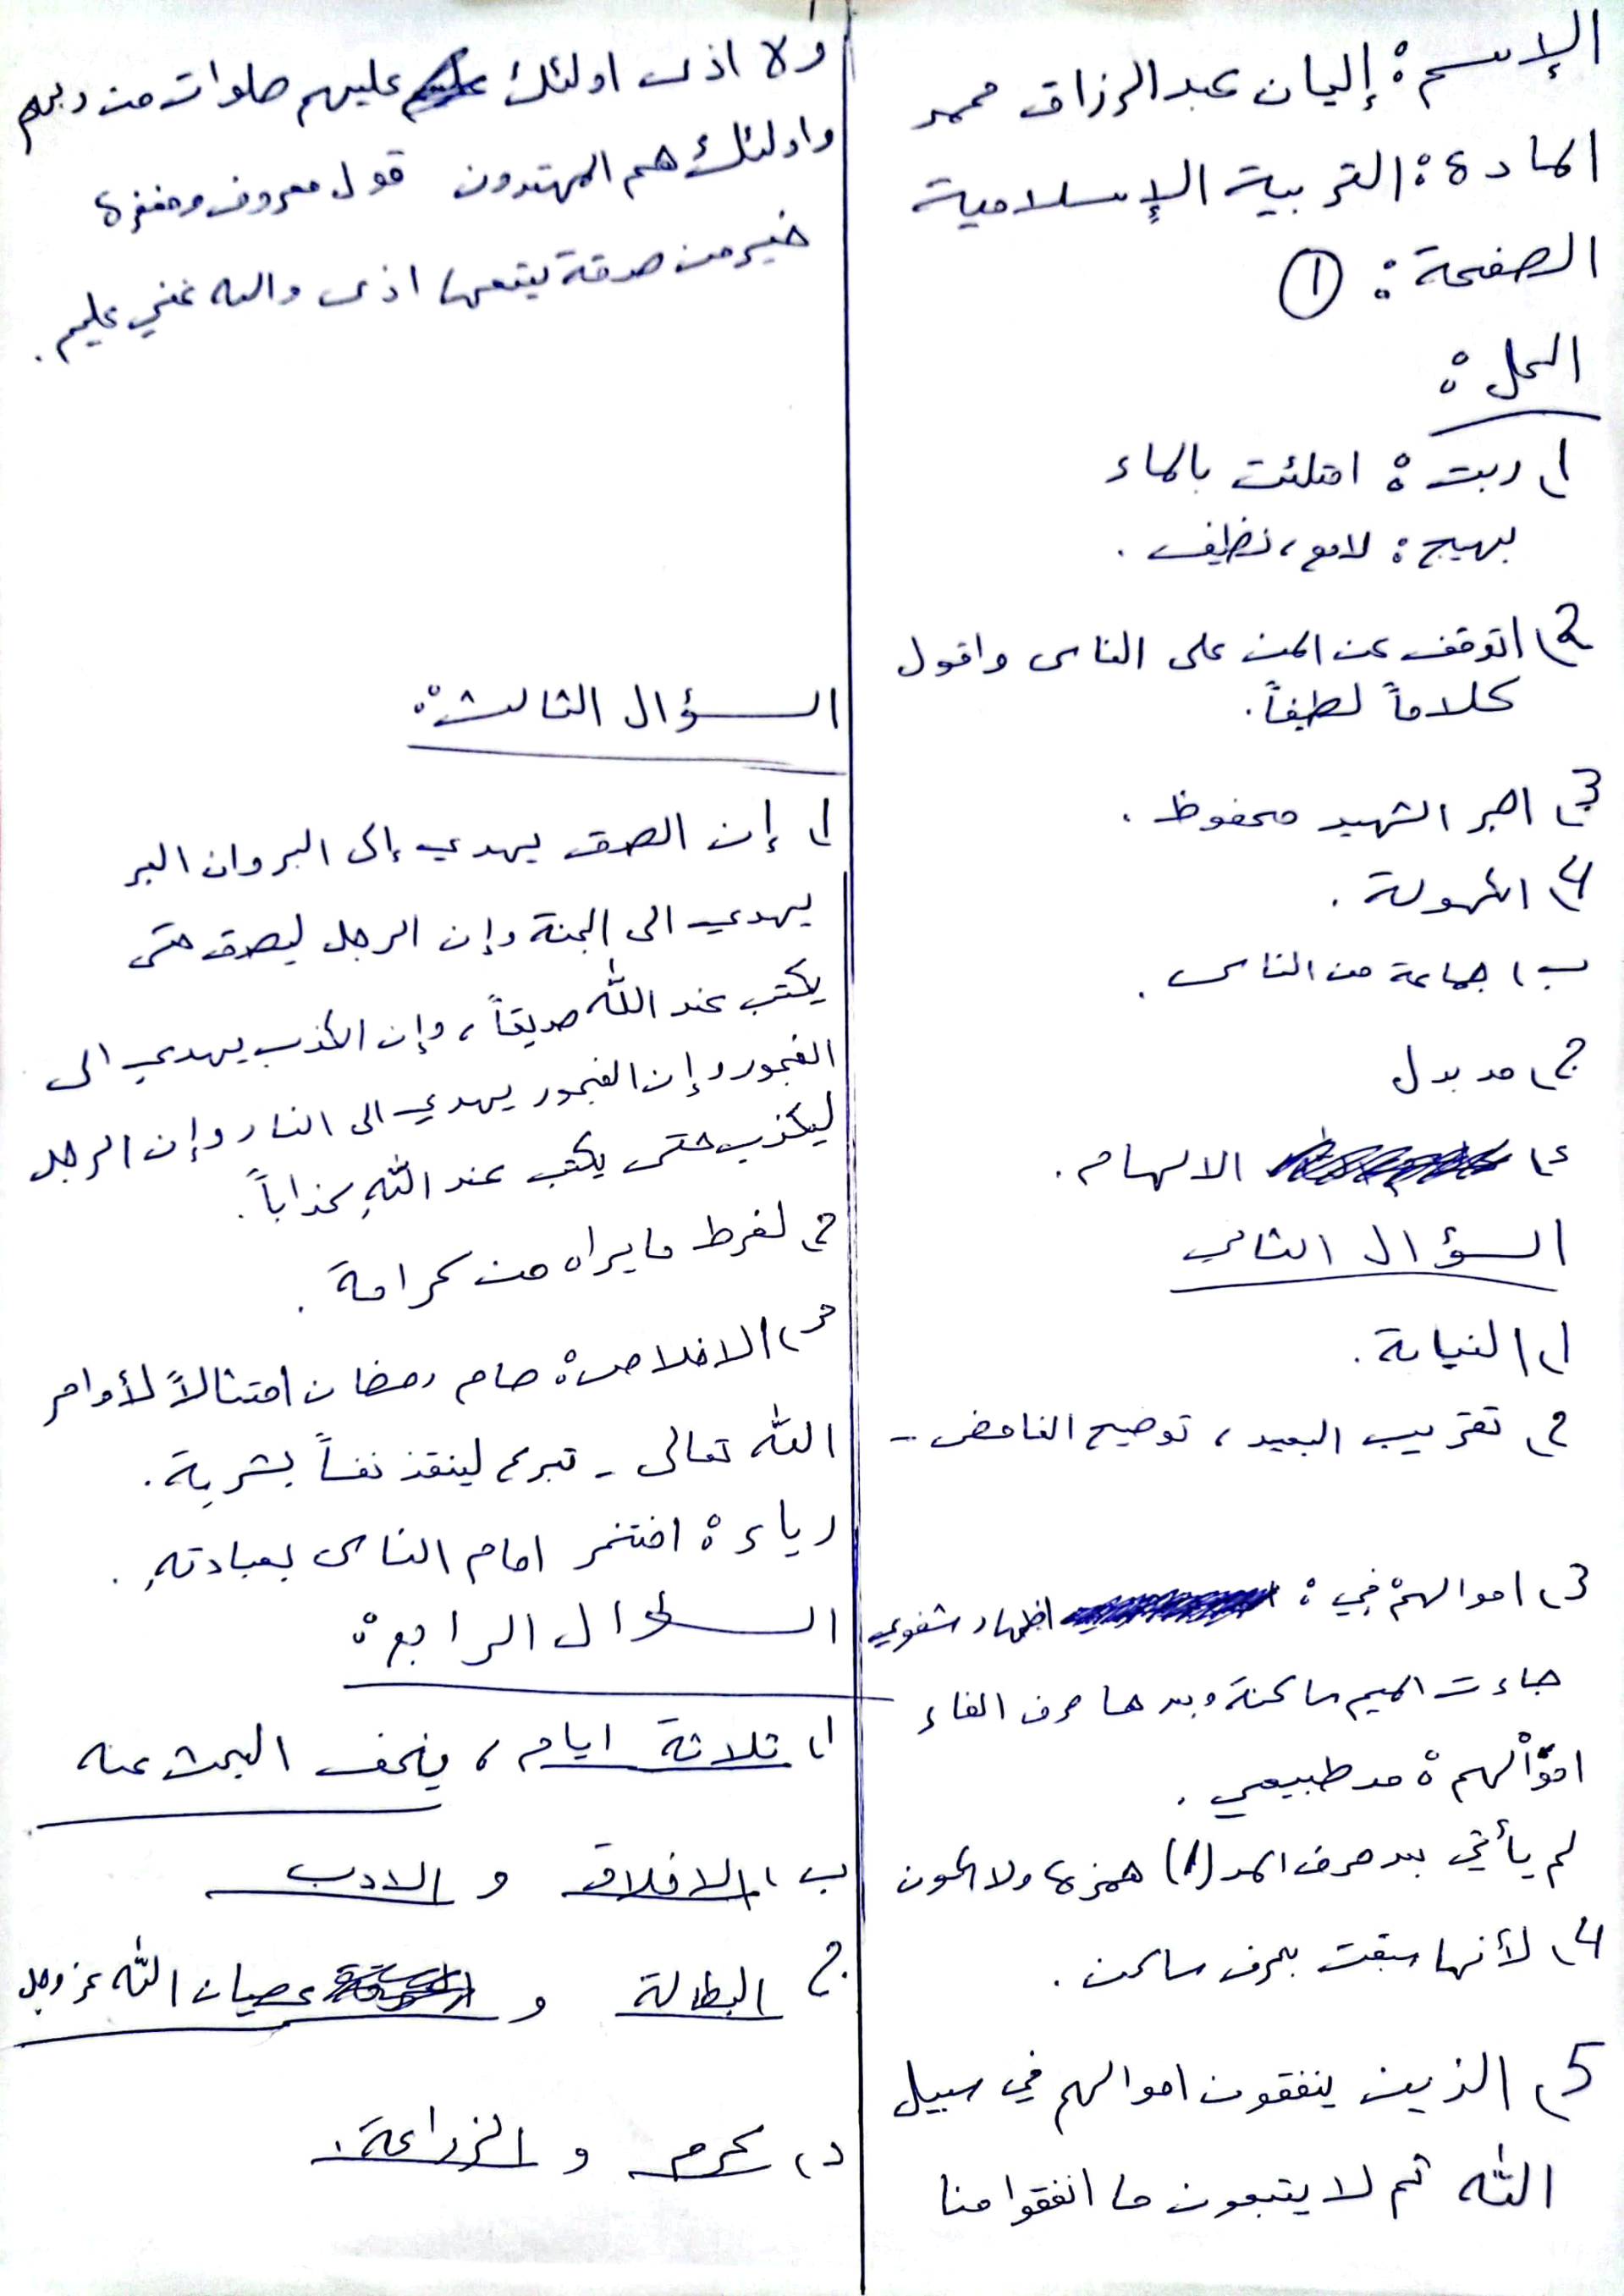 الإسم: إليان عبدالرزاق محمد
المادة: التربية الإسلامية
الصفحة: ①
الحل:
1) ربت: امتلئت بالماء
بهيج: لامع، نظيف.
2) اتوقف عن المن على الناس واقول
كلاماً لطيفاً.
3) اجر الشهيد محفوظ.
4) الكهولة.
ب) جماعة من الناس.
ج) مد بدل
د) الالهام.
السؤال الثاني
1) النيابة.
2) تقريب البعيد، توضيح الغامض -
3) اموالهمْ في: اظهار شفوي
جاءت الميم ساكنة وبعدها حرف الفاء
امواْلهم: مد طبيعي.
لم يأتي بعد حرف المد (ا) همزة ولا سكون
4) لأنها سبقت بحرف ساكن.
5) الذين ينفقون اموالهم في سبيل
الله ثم لا يتبعون ما انفقوا منا
ولا اذى اولئك عليهم صلوات من ربهم
واولئك هم المهتدون قول معروف ومغفرة
خير من صدقة يتبعها اذى والله غني عليم.
السؤال الثالث:
1) إن الصدق يهدي إلى البر وان البر
يهدي الى الجنة وإن الرجل ليصدق حتى
يكتب عند الله صديقاً، وإن الكذب يهدي الى
الفجور وإن الفجور يهدي الى النار وإن الرجل
ليكذب حتى يكتب عند اللهِ كذاباً.
2) لفرط ما يراه من كرامة.
3) الاخلاص: صام رمضان امتثالاً لأوامر
الله تعالى - تبرع لينقذ نفساً بشرية.
رياء: افتخر امام الناس بعبادتهِ.
السؤال الرابع:
1) ثلاثة ايام، يخفف البحث عنه
ب) الاخلاق و الادب
ج البطالة و عصيان الله عز وجل
د) كرم و الزراعة.